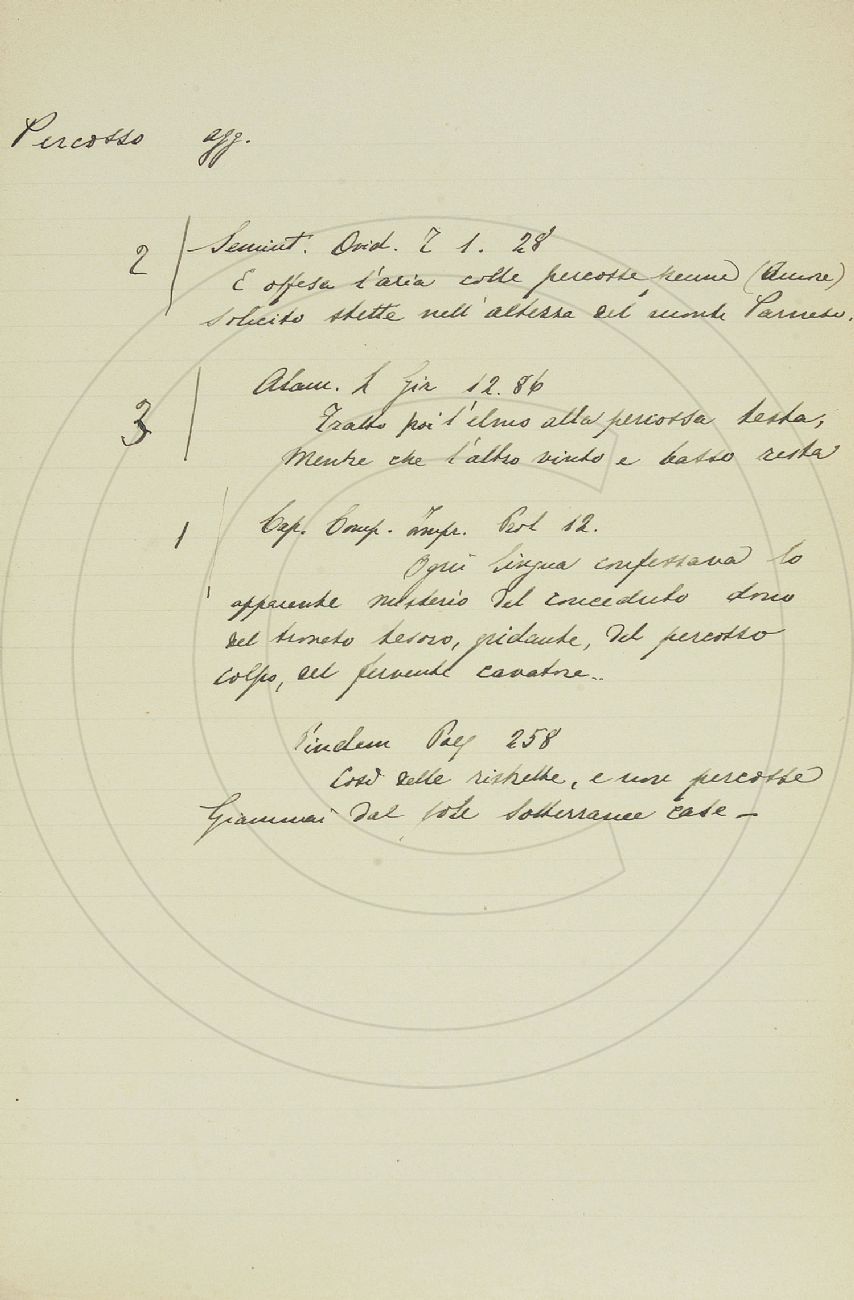 Percosso agg.
2 Semint. Ovid. I 1. 28
E offesa l'aria colle percosse penne (Amore)
solicito stette nell'altezza del monte Parneso.
3 Alam. L Gir 12. 86
Tratto poi l'elmo alla percossa testa,
Mentre che l'altro vinto e basso resta
1 Cap. Comp. Impr. Prol 12.
Ogni lingua confessava lo
apparente misterio del conceduto dono
del trovato tesoro, gridante, del percosso
colpo, del fervente cavatore..
Pindem Pag 258
Così delle ristrette, e non percosse
Giammai dal sole sotterranee case —